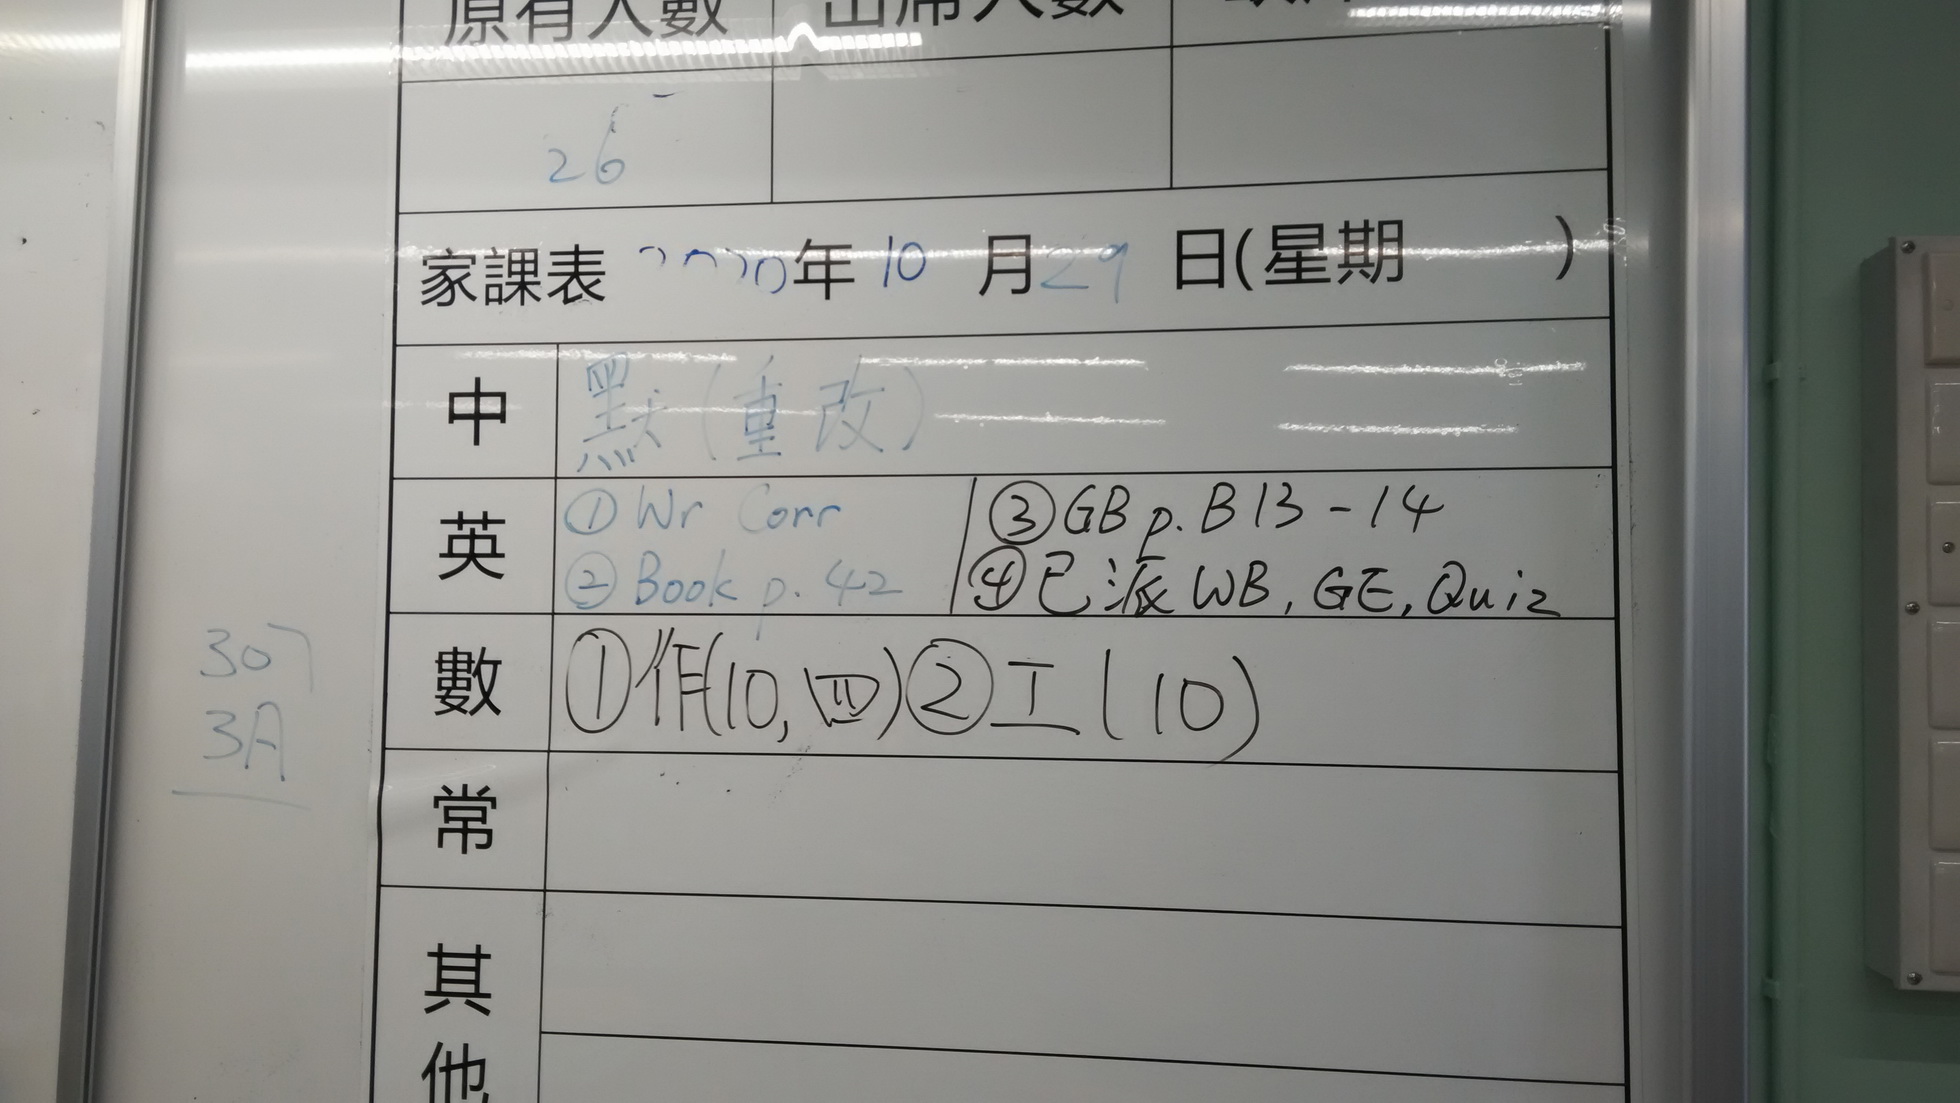 原有人數 出席人數
26
家課表 2020年10月29日(星期 )
中 默(重改)
英 ①Wr Corr ③GB p. B13-14
②Book p. 42 ④已派 WB, GE, Quiz
307
3A
數 ①作(10, 四)②工(10)
常
其他